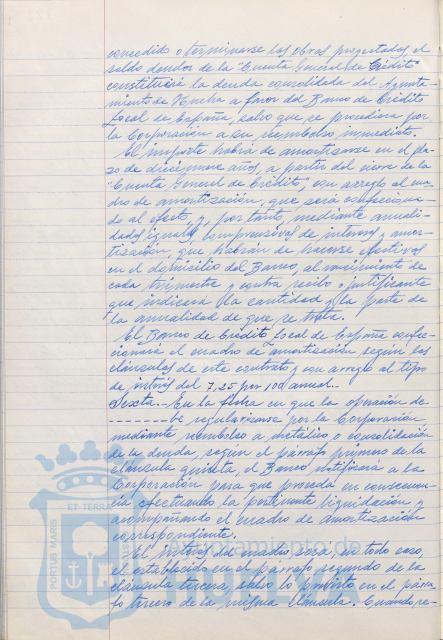 concedido o terminarse las obras proyectadas, el
saldo deudor de la "Cuenta General de Crédito"
constituirá la deuda consolidada del Ayunta-
miento de Huelva a favor del Banco de Crédito
Local de España, salvo que se procediera por
la Corporación a su reembolso inmediato.
El importe habrá de amortizarse en el pla-
zo de diecinueve años, a partir del cierre de la
"Cuenta General de Crédito", con arreglo al cua-
dro de amortización, que será confecciona-
do al efecto, y, por tanto, mediante anuali-
dades iguales comprensivas de interés y amor-
tización, que habrán de hacerse efectivas
en el domicilio del Banco, al vencimiento de
cada trimestre y contra recibo o justificante
que indicará la cantidad y la parte de
la anualidad de que se trata.
El Banco de Crédito Local de España confec-
cionará el cuadro de amortización según las
cláusulas de este contrato y con arreglo al tipo
de interés del 7,25 por 100 anual.-
Sexta.- En la fecha en que la operación de-
- - - - - - - be regularizarse por la Corporación
mediante reembolso a metálico o consolidación
de la deuda, según el párrafo primero de la
cláusula quinta, el Banco notificará a la
Corporación para que proceda en consecuen-
cia efectuando la pertinente liquidación y
acompañando el cuadro de amortización
correspondiente.
El interés del cuadro será, en todo caso,
el establecido en el párrafo segundo de la
cláusula tercera, salvo lo previsto en el párra-
fo tercero de la misma cláusula. Cuando re-
PORTUS MARIS
ET TERRAE
Ayuntamiento de
HUELVA